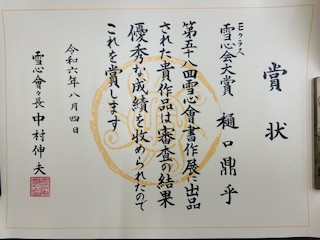 賞状
Eクラス
雪心会大賞 樋口鼎乎
第五十八回雪心會書作展に出品
された貴作品は審査の結果
優秀な成績を收められたので
これを賞します
令和六年八月四日
雪心會々長 中村伸夫